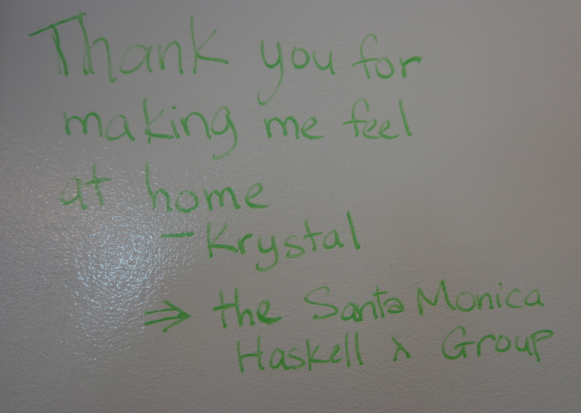 Thank you for
making me feel
at home
- Krystal
⇒ the Santa Monica
Haskell λ Group